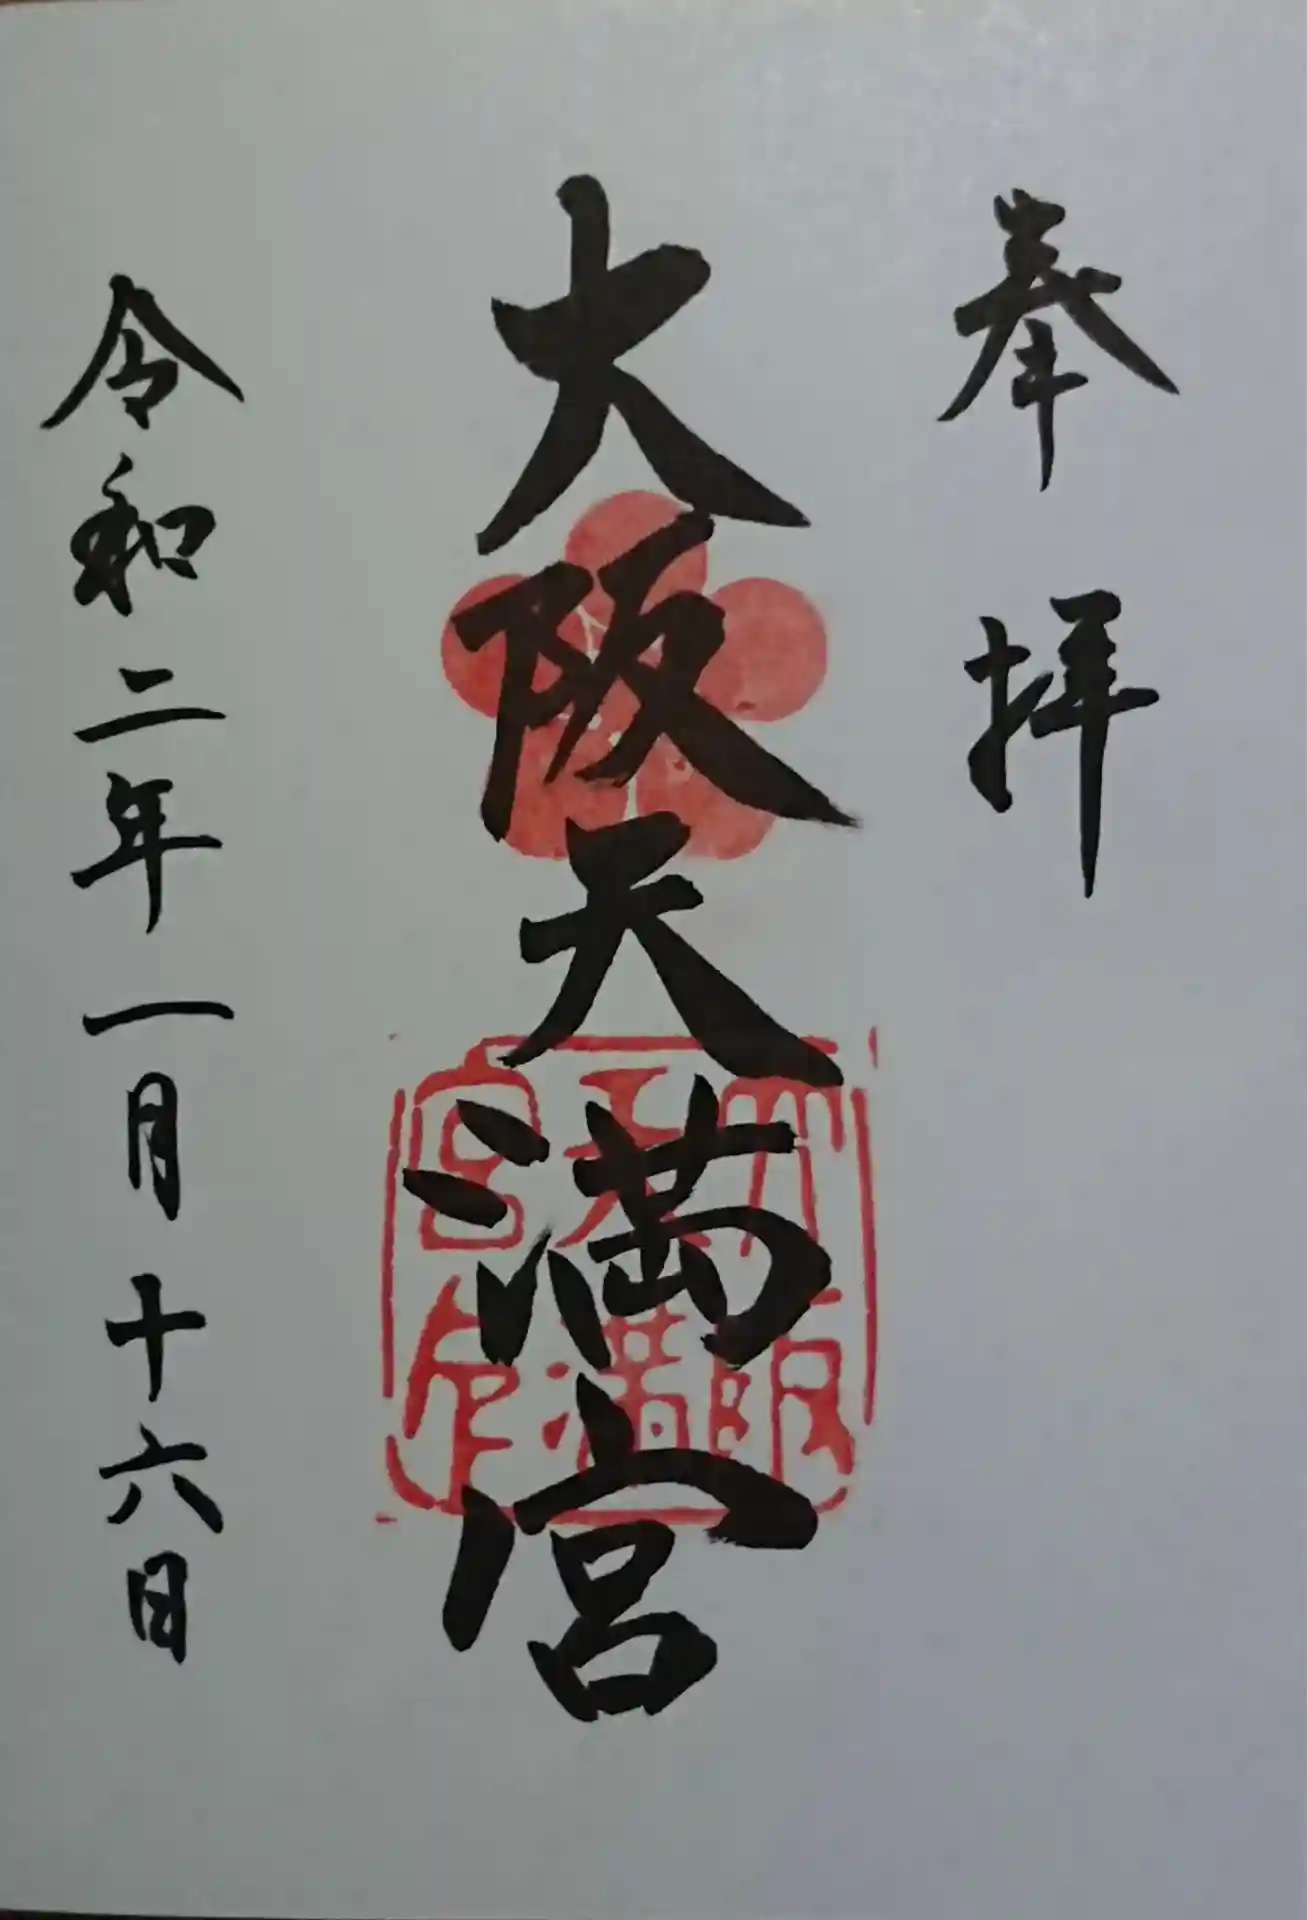 奉拝
大阪天満宮
大阪天満宮印
令和二年一月十六日